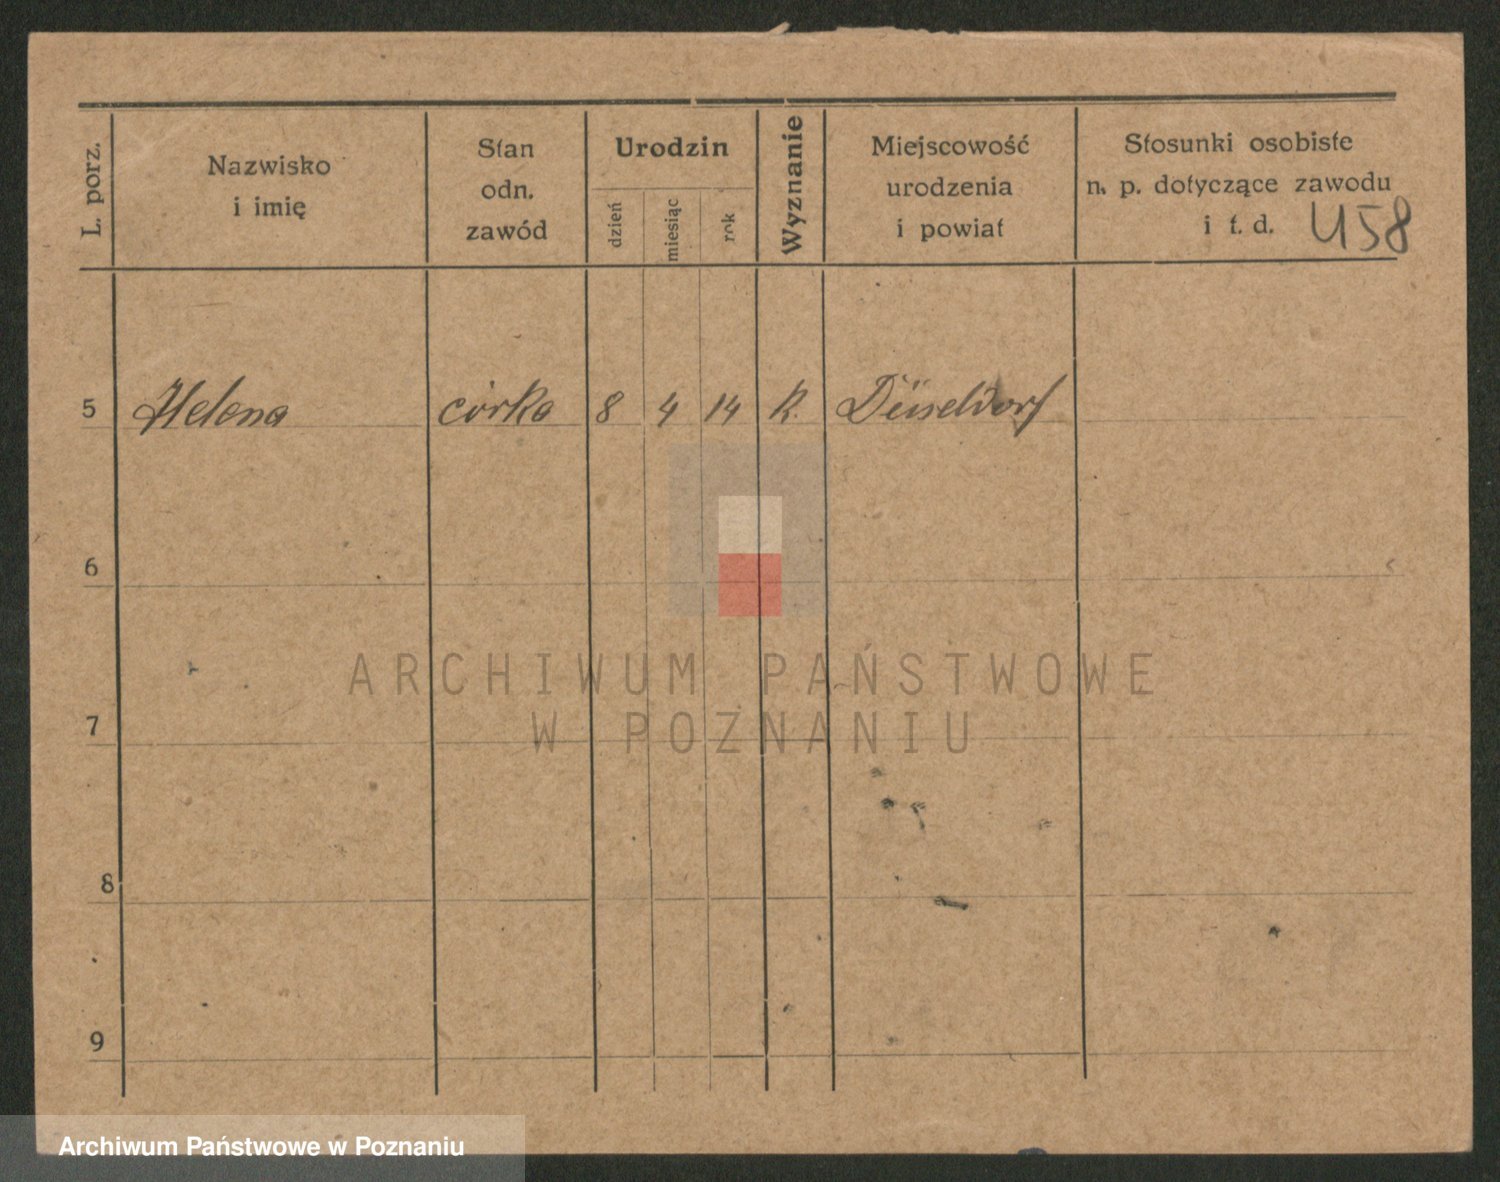 L. porz.
Nazwisko
i imię
Stan
odn.
zawód
Urodzin
dzień
miesiąc
rok
Wyznanie
Miejscowość
urodzenia
i powiat
Stosunki osobiste
n. p. dotyczące zawodu
i t. d.
458
5 Helena córka 8 4 14 K. Düseldorf
6
ARCHIWUM PAŃSTWOWE
W POZNANIU
7
8
9
Archiwum Państwowe w Poznaniu